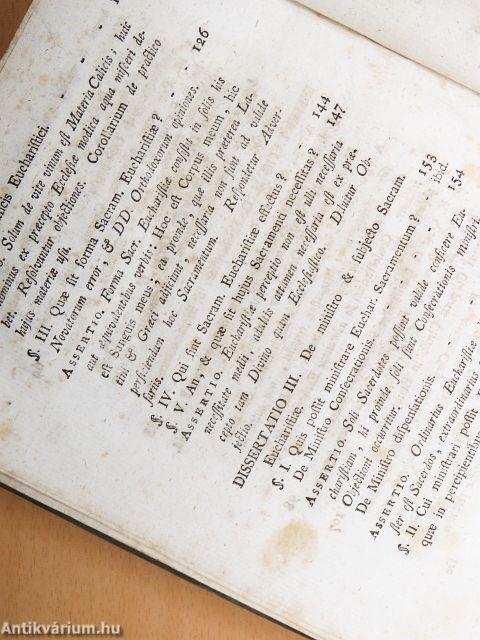 cis Eucharistici.
Solum de vite vinum est Materia Calicis; huic
minus ex præcepto Ecclesiæ modica aqua misceri de-
bet. Resolvuntur objectiones. Corollarium de practico
hujus materiæ usu. - - - 126
§. III. Quæ sit forma Sacram. Eucharistiæ?
Novatorum error, & DD. Orthodoxorum opiniones.
ASSERTIO. Forma Sacr. Eucharistiæ consistit in solis his
aut æquivalentibus verbis: Hoc est Corpus meum, hic
est Sanguis meus; ea proinde, quæ illis præterea La-
tini & Græci adjiciunt, necessaria non sunt ad valide
perficiendum hoc Sacramentum. Respondetur Adver-
sariis.
§. IV. Qui sint Sacram. Eucharistiæ effectus? 144
§. V. An, & quæ sit hujus Sacramenti necessitas? 147
ASSERTIO. Eucharistiæ perceptio non est ulli necessaria
necessitate medii, adultis attamen necessaria est ex præ-
cepto tam Divino quam Ecclesiastico. Diluitur Ob-
jectio.
DISSERTATIO III. De ministro & subjecto Sacram.
Eucharistiæ.
§. I. Quis possit ministrare Euchar. Sacramentum? 153
De Ministro Consecrationis. ibid.
ASSERTIO. Soli Sacerdotes possunt valide conficere Eu-
charistiam, hi proinde soli sunt Consecrationis ministri.
Objectioni occurritur. 154
De Ministro dispensationis.
ASSERTIO. Ordinarius Eucharistiæ
ster est Sacerdos, extraordinarius
§. II. Cui ministrari possit
quæ in percipientibus
Antikvárium.hu